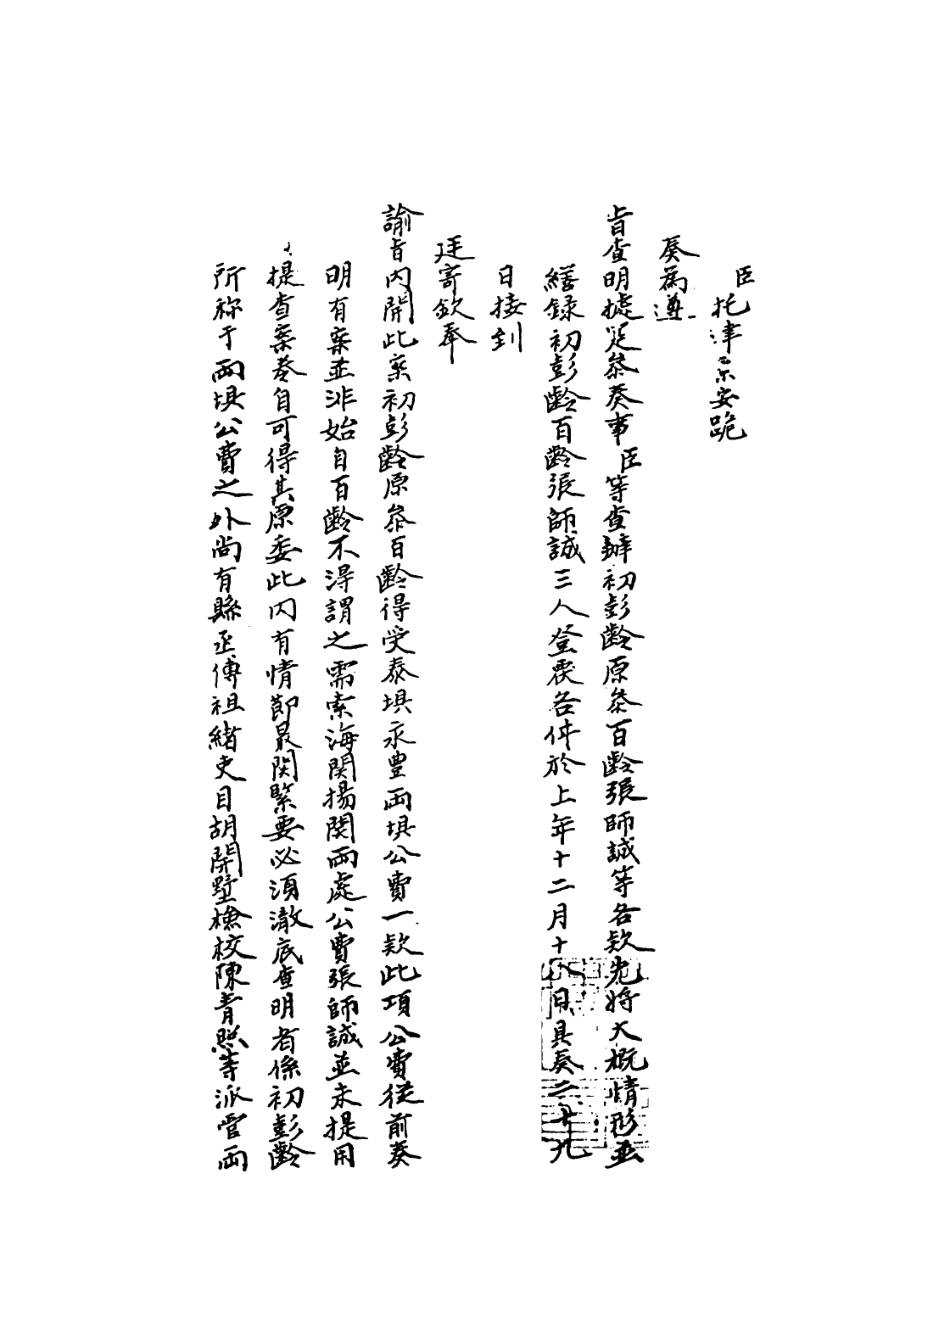 臣托津景安跪
奏為遵
旨查明據定叅奏事臣等查辦初彭齡原叅百齡張師誠等各欵先將大概情形並
繕録初彭齡百齡張師誠三人登覆各件於上年十二月十八日具奏二十九
日接到
廷寄欽奉
諭旨内開此案初彭齡原叅百齡得受泰壩永豊兩壩公費一欵此項公費從前奏
明有案並非始自百齡不得謂之需索海関揚関兩處公費張師誠並未提用
提查案卷自可得其原委此内有情節最関緊要必須澈底查明者係初彭齡
所称于兩壩公費之外尚有縣丞傅祖緒吏目胡開墅檢校陳青照等派管兩